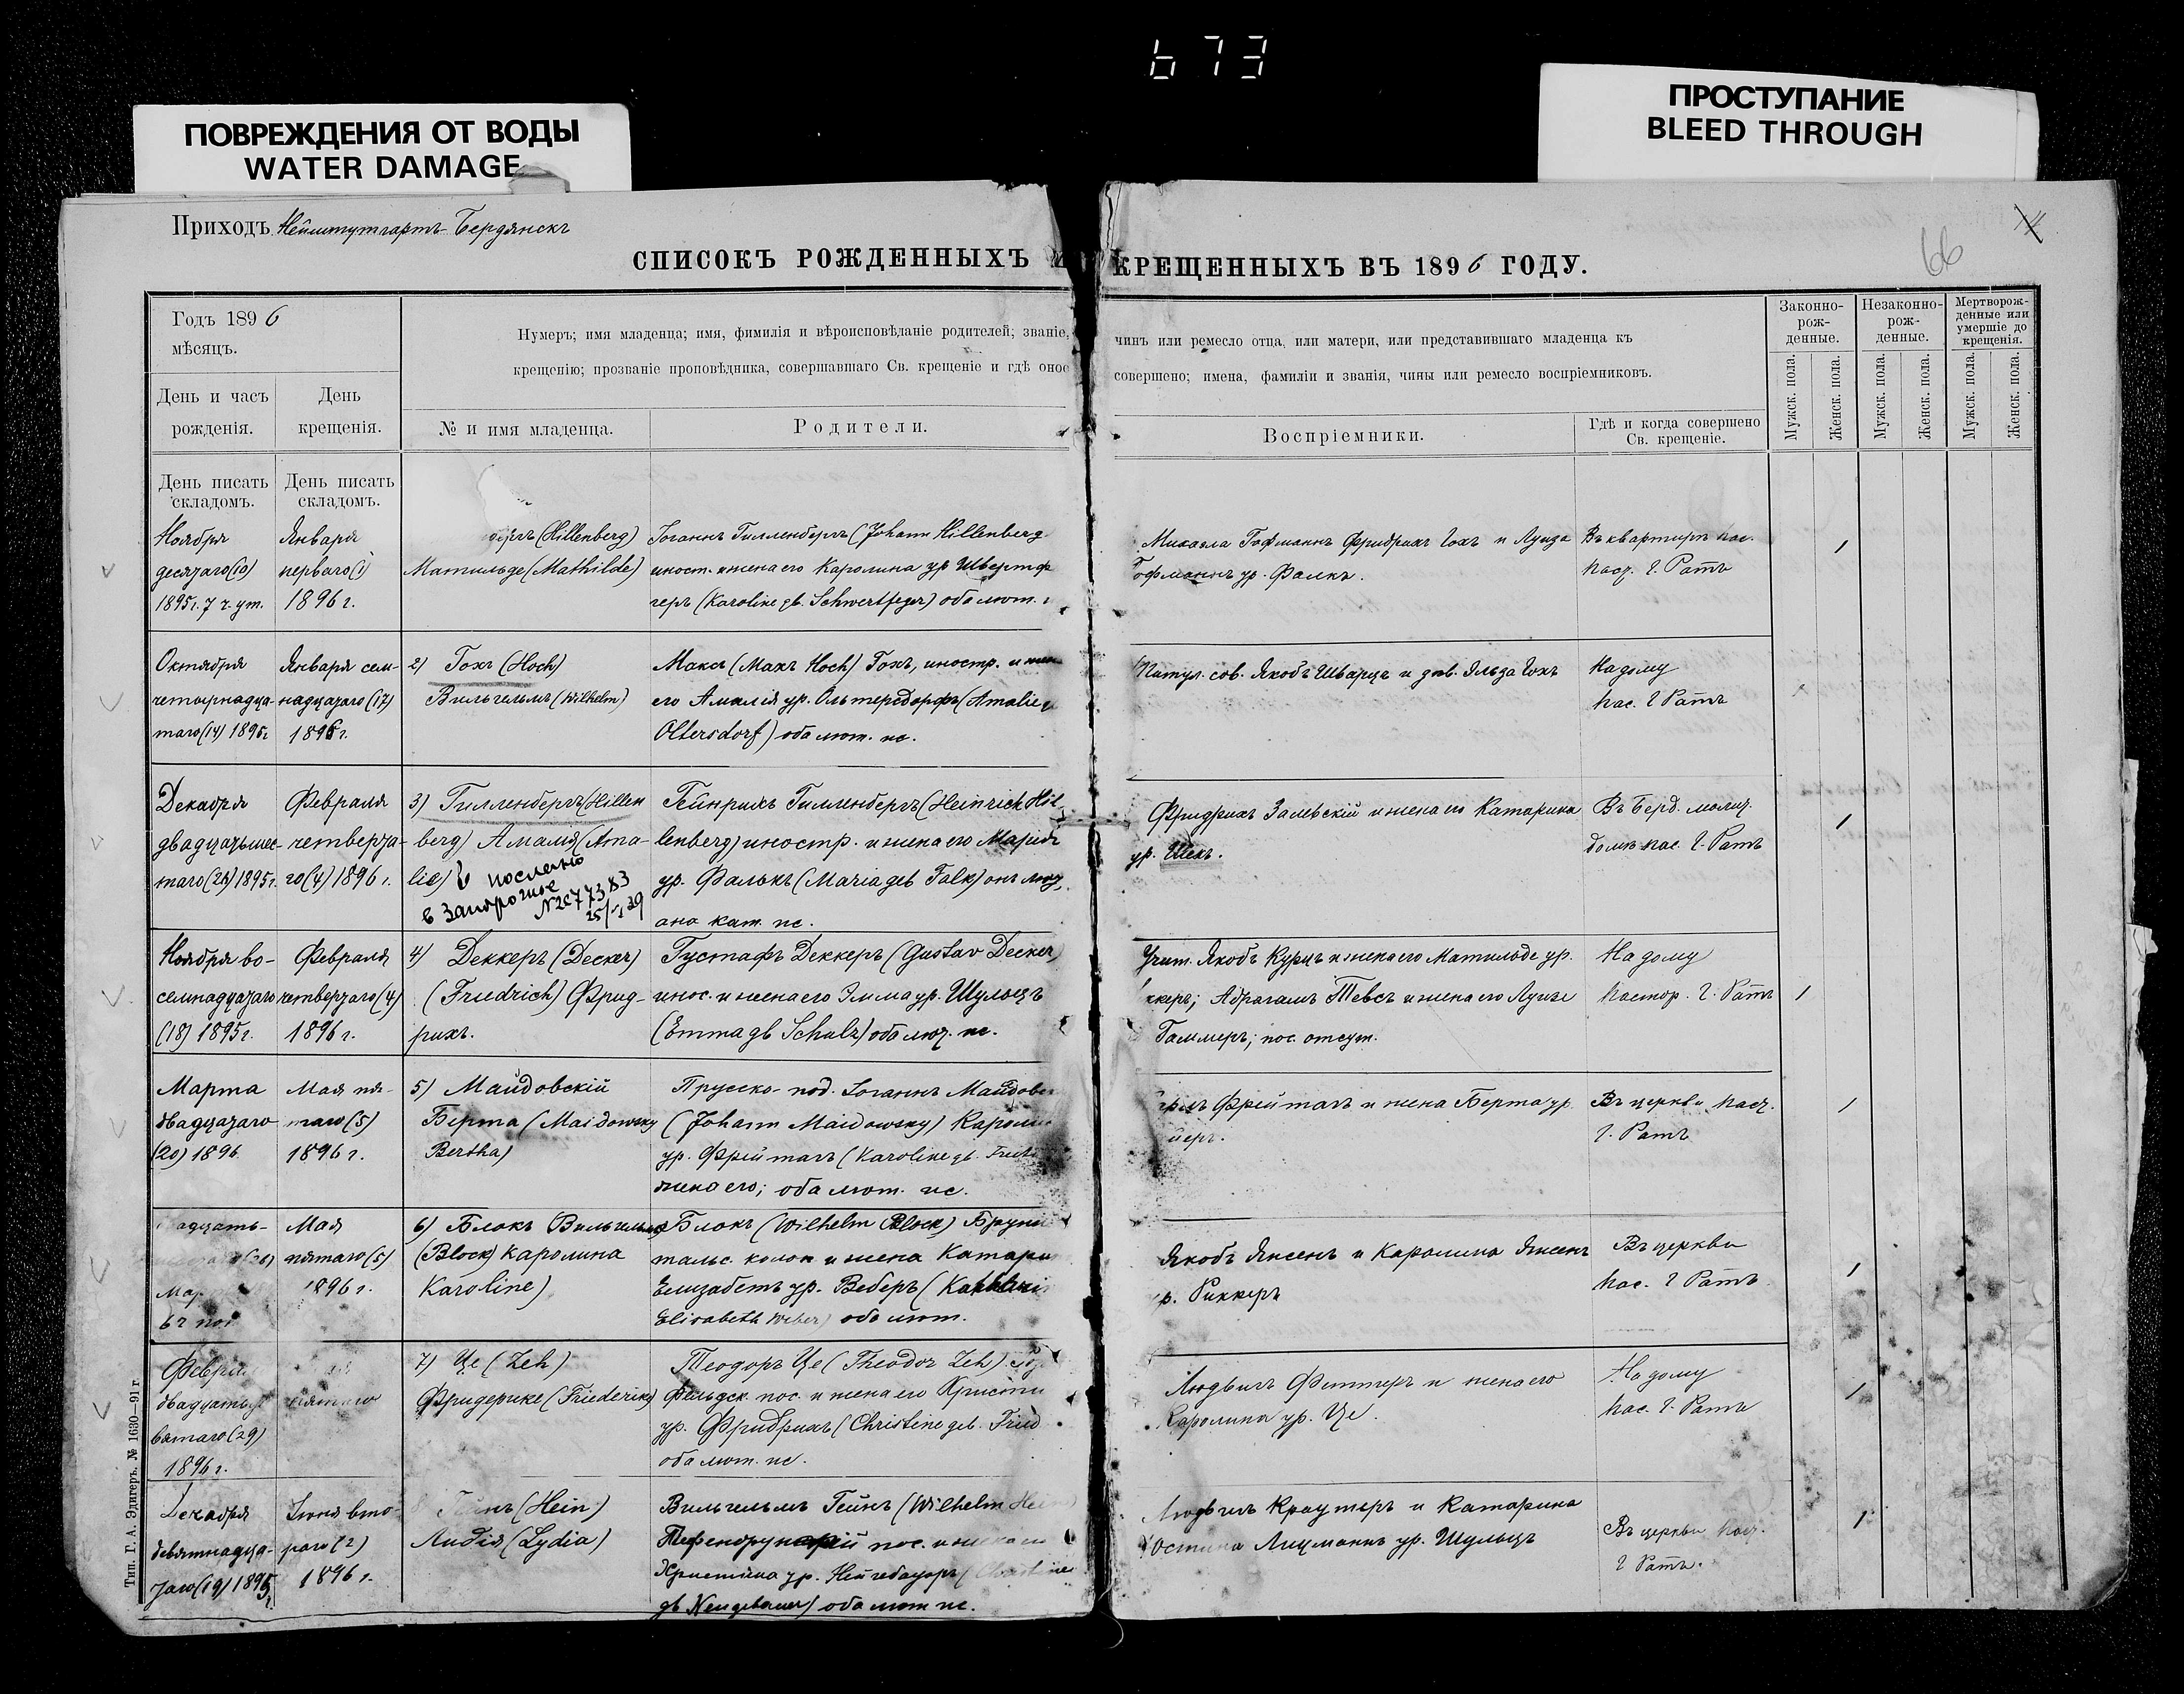 673
ПОВРЕЖДЕНИЯ ОТ ВОДЫ
WATER DAMAGE
ПРОСТУПАНИЕ
BLEED THROUGH
66
Приходъ Нейштутгартъ-Бердянскъ
СПИСОКЪ РОЖДЕННЫХЪ И КРЕЩЕННЫХЪ ВЪ 1896 ГОДУ.
Годъ 1896
мѣсяцъ.
День и часъ
рожденія.
День
крещенія.
Нумеръ; имя младенца; имя, фимилія и вѣроисповѣданіе родителей; званіе, чинъ или ремесло отца, или матери, или представившаго младенца къ
крещенію; прозваніе проповѣдника, совершавшаго Св. крещеніе и гдѣ оное совершено; имена, фамиліи и званія, чины или ремесло воспріемниковъ.
№ и имя младенца.
Родители.
Воспріемники.
Гдѣ и когда совершено
Св. крещеніе.
Законно-
рож-
денные.
Незаконно-
рож-
денные.
Мертворож-
денные или
умершіе до
крещенія.
Мужск. пола.
Женск. пола.
Мужск. пола.
Женск. пола.
Мужск. пола.
Женск. пола.
День писать
складомъ.
День писать
складомъ.
Ноября
десятаго (10)
1895г. 7 ч. ут.
Января
перваго (1)
1896 г.
бергъ (Hillenberg)
Матильде (Mathilde)
Іоганнъ Гилленбергъ (Johann Hillenberg
иност. и жена его Каролина ур. Швертф
геръ (Karoline gb. Schwertfeger) оба лют.
Михаэла Гофманнъ Фридрихъ Гохъ и Луиза
Гофманнъ ур. Фалкъ.
Въ квартирѣ пас.
паст. Г. Ратъ
Октября
четырнадца-
таго (14) 1895г.
Января сем-
надцатаго (17)
1896 г.
2) Гохъ (Hoch)
Вильгельмъ (Wilhelm)
Максъ (Maxъ Hoch) Гохъ, иностр. и жена
его Амалія ур. Ольтерсдорфъ (Amalie g
Oltersdorf) оба лют. ис.
Титул. сов. Якобъ Шварцъ и дѣв. Эльза Гохъ
На дому
пас. Г. Ратъ
Декабря
двадцатьшес-
таго (26) 1895г.
Февраля
четверта-
го (4) 1896 г.
3) Гилленбергъ (Hillen
berg) Амалія (Ama-
lie)
послано
в Запорожие
N2077383
Гейнрихъ Гилленбергъ (Heinrich Hil-
lenberg) иностр. и жена его Марія
ур. Фалькъ (Maria geb Falk) онъ лют.
она кат. ис.
Фридрихъ Залевскій и жена его Катарина
ур. Шекъ.
Въ Берд. молит.
домѣ пас. Г. Ратъ
Ноября во-
семнадцатаго
(18) 1895г.
Февраля
четвертаго (4)
1896 г.
4) Деккеръ (Decker)
(Friedrich) Фрид-
рихъ.
Густафъ Деккеръ (Gustav Decker)
инос. и жена его Эмма ур. Шульцъ
(Emma gb Schulz) оба лют. ис.
Учит. Якобъ Курцъ и жена его Матильде ур.
ккеръ; Абрагамъ Тевсъ и жена его Луизе
Гаммеръ; пос. отсут.
На дому
Пастор. Г. Ратъ
1
Марта
двадцатаго
(20) 1896
Мая пя-
таго (5)
1896 г.
5) Майдовскій
Берта (Maidowsky
Bertha)
Прусско-под. Іоганнъ Майдовс
(Johann Maidowsky) Кароли
ур. Фрейтагъ (Karoline gb.
жена его; оба лют. ис.
Фрейтагъ и жена Берта ур.
Въ церкви паст.
Г. Ратъ
адцать-
Мар
Мая
пятаго (5)
1896 г.
6) Блокъ Вильгельмъ
(Block) Каролина
Karoline)
Блокъ (Wilhelm Block) Бруни
тальс. колон и жена Катари
Елизабетъ ур. Веберъ (
Elisabeth Weber) оба лют.
Якобъ Янсенъ и Каролина Янсенъ
ур. Риккеръ
Въ церкви
пас. Г. Ратъ
Феврал
двадцатьде
вятаго (29)
1896 г.
пятаго
7) Це (Zeh)
Фридерике (Friederike)
Теодоръ Це (Theodor Zeh)
фельдск. пос. и жена его Христи
ур. Фридрихъ (Christine geb. Fried
оба лют. ис.
Людвигъ Феттеръ и жена его
Каролина ур. Це.
На дому
пас. Г. Ратъ
Декабря
девятнадца-
таго (19) 1895
г.
Іюня вто-
раго (2)
1896 г.
Гейнъ (Hein)
Лидія (Lydia)
Вильгельмъ Гейнъ (Wilhelm Hein
пос. и жена его
Христина ур. Нейгебауеръ (Christine
gb Neugebauer) оба лют ис.
Людвигъ Краутеръ и Катарина
Лицманнъ ур. Шульцъ
Въ церкви паст.
Г. Ратъ.
Тип. Г. А. Эдигеръ. № 1630—91 г.